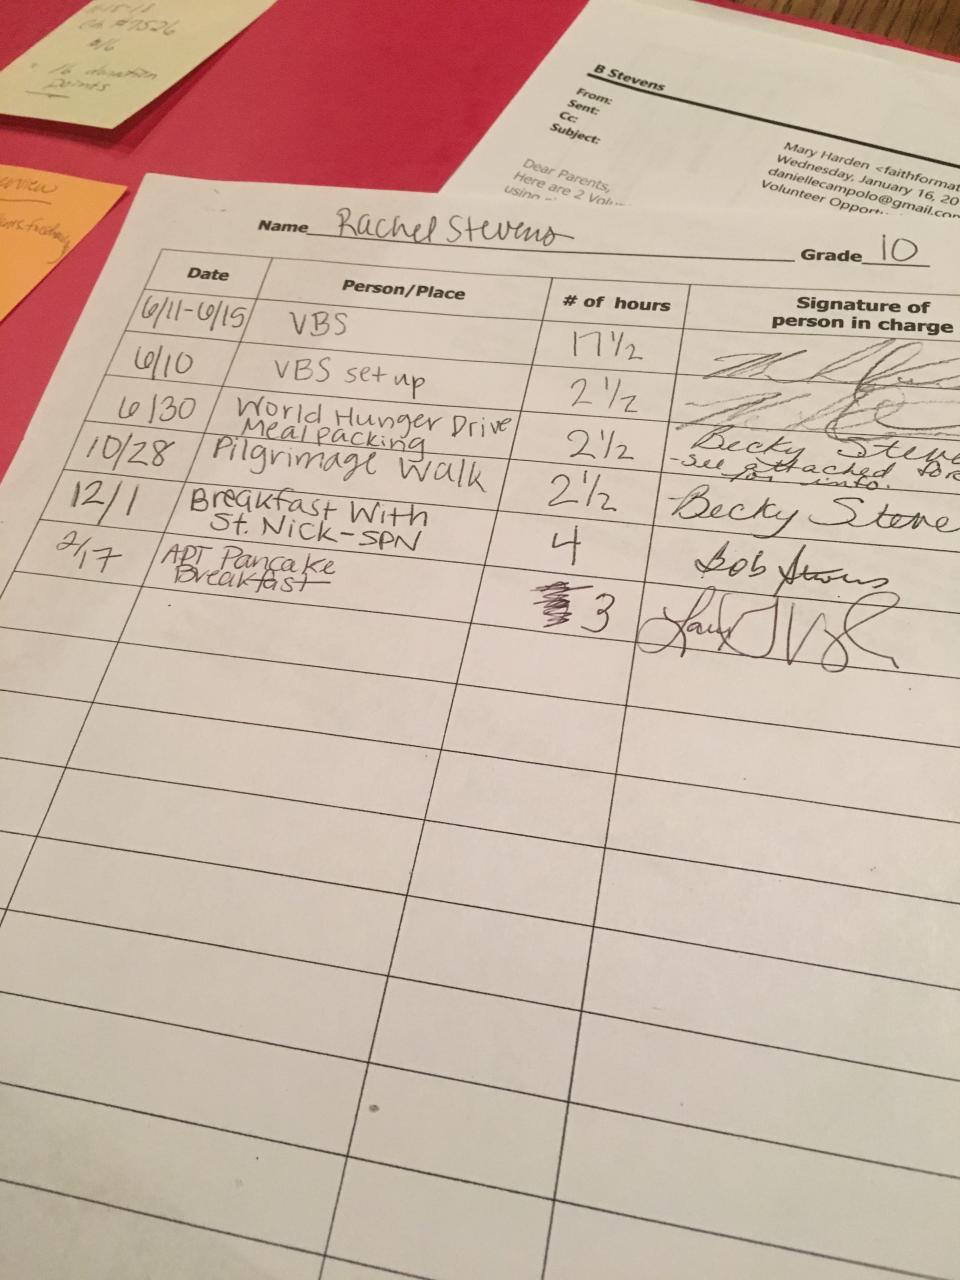 16 donation
points
B Stevens
From:
Sent:
Cc:
Subject:
Mary Harden <faithformat
Wednesday, January 16, 20
daniellecampolo@gmail.com
Volunteer Opport
Dear Parents,
Here are 2 Volu
using
Name Rachel Stevens Grade 10
Date Person/Place # of hours Signature of person in charge
6/11-6/15 VBS 17 1/2
6/10 VBS set up 2 1/2
6/30 World Hunger Drive Meal packing 2 1/2 Becky Steve
-see attached for
for info.
10/28 Pilgrimage Walk 2 1/2 Becky Steve
12/1 Breakfast With St. Nick-SPN 4 Bob Stevens
2/17 APT Pancake Breakfast 3